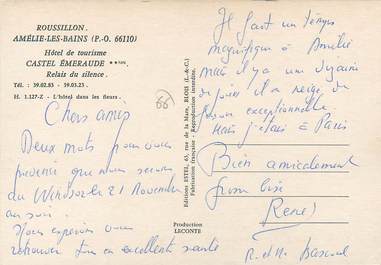 ROUSSILLON.
AMÉLIE-LES-BAINS (P.-O. 66110)
Hôtel de tourisme
CASTEL ÉMERAUDE **NN.
Relais du silence.
Tél. : 39.02.83 - 39.03.23.
H. 1.127-Z - L'hôtel dans les fleurs.
66
Chers amis
Deux mots pour vous
prévenir que nous serons
au Windsor le 21 Novembre
au soir.
Nous espérons vous
retrouver tous en excellente santé
Editions ESTEL, 65, rue de la Mare, BLOIS (France)
Fabrication française - Reproduction interdite.
Production
LECONTE
Il fait un temps
magnifique à Amélie
mais il y a une dizaine
de jours il a neigé, de
façon exceptionnelle
mais j'étais à Paris
Bien amicalement
René